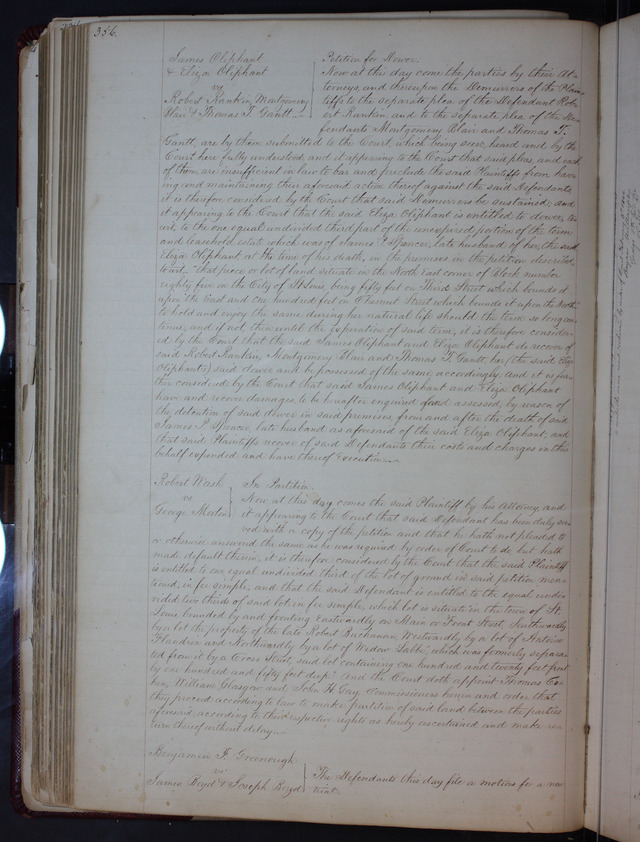 356.
James Oliphant
& Eliza Oliphant
vs
Robert Rankin, Montgomery
Blair & Thomas T. Gantt
Petition for Dower.
Now at this day come the parties by their At-
torneys, and thereupon the Demurrers of the Plain-
tiffs to the separate plea of the Defendant Rob-
ert Rankin and to the separate plea of the De-
fendants Montgomery Blair and Thomas T.
Gantt, are by them submitted to the Court, which being seen, heard and by the
Court here fully understood, and it appearing to the Court that said pleas, and each
of them, are insufficient in law to bar and preclude the said Plaintiffs from hav-
ing and maintaining their aforesaid action thereof against the said Defendants,
it is therefore considered by the Court that said Demurrers be sustained; and
it appearing to the Court that the said Eliza Oliphant is entitled to dower, to
wit, to the one equal undivided third part of the unexpired portion of the term
and leasehold estate which was of James P. Spencer, late husband of her, the said
Eliza Oliphant at the time of his death, in the premises in the petition described,
to wit, "that piece or lot of land situate in the North East corner of Block number
eighty five in the City of St Louis, being fifty feet on Third Street which bounds it
upon the East and One hundred feet on Chesnut Street which bounds it upon the North"
to hold and enjoy the same during her natural life should the term so long con-
tinue, and if not then until the expiration of said term, it is therefore consider-
ed by the Court that the said James Oliphant and Eliza Oliphant do recover of
said Robert Rankin, Montgomery Blair and Thomas T. Gantt, her (the said Eliza
Oliphants) said dower and be possessed of the same accordingly. And it is fur-
ther considered by the Court that said James Oliphant and Eliza Oliphant
have and recover damages, to be hereafter enquired of and assessed, by reason of
the detention of said dower in said premises from and after the death of said
James P. Spencer, late husband as aforesaid of the said Eliza Oliphant, and
that said Plaintiffs recover of said Defendants their costs and charges in this
behalf expended and have thereof Execution.
Robert Wash
vs
George Morton
In Partition.
Now at this day comes the said Plaintiff by his Attorney, and
it appearing to the Court that said Defendant has been duly ser-
ved with a copy of the petition and that he hath not pleaded to
or otherwise answered the same as he was required by order of Court to do but hath
made default therein, it is therefore considered by the Court that the said Plaintiff
is entitled to one equal undivided third of the lot of ground in said petition men-
tioned, in fee simple, and that the said Defendant is entitled to the equal undi-
vided two thirds of said lot in fee simple, which lot is situate in the town of St.
Louis bounded by and fronting Eastwardly on Main or Front Street, Southwardly
by a lot the property of the late Robert Buchanan, Westwardly by a lot of Antoine
Flandrin and Northwardly by a lot of Widow Labbé, which was formerly separa-
ted from it by a Cross Street, said lot containing one hundred and twenty feet front
by one hundred and fifty feet deep. And the Court doth appoint Thomas
William Glasgow and John H. Gay, Commissioners herein and order that
they proceed according to law to make partition of said land between the parties
aforesaid according to their respective rights as hereby ascertained and make re-
turn thereof without delay.
Benjamin F. Greenough
vs
James Boyd & Joseph Boyd
The Defendants this day file a motion for a new
trial.